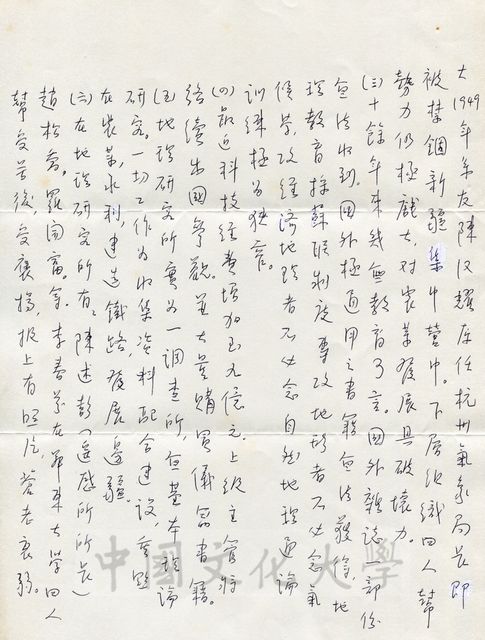 大1949年系友陳汉耀原任杭州氣象局長即
被禁錮新疆集中營中。下層组織四人幫
勢力仍極龐大，对农業發展具破壞力。
(三)十餘年來幾無教育可言。国外雜誌一部份
無法收到。国外極通用之書籍無法獲得，地
理教育採蘇联制度，專攻地形者不必念氣
候学，攻經济地理者不必念自然地理通論
訓練極为狹窄。
(四)最近科技經費增加至九億元。上級主管將
络續出国參觀。並大量購買儀器書籍。
(五)地理研究所實为一調查所，無基本理論
研究。一切工作为收集资料配合建設，重點
在农業水利，建造鐵路，發展邊疆。
(六)在地理研究所有：陳述彭（遥感所所長）
趙松喬。羅開富等。李春芬在華東大学四人
幫受苦後，受褒揚，报上有照片，蒼老衰弱。
中國文化大學